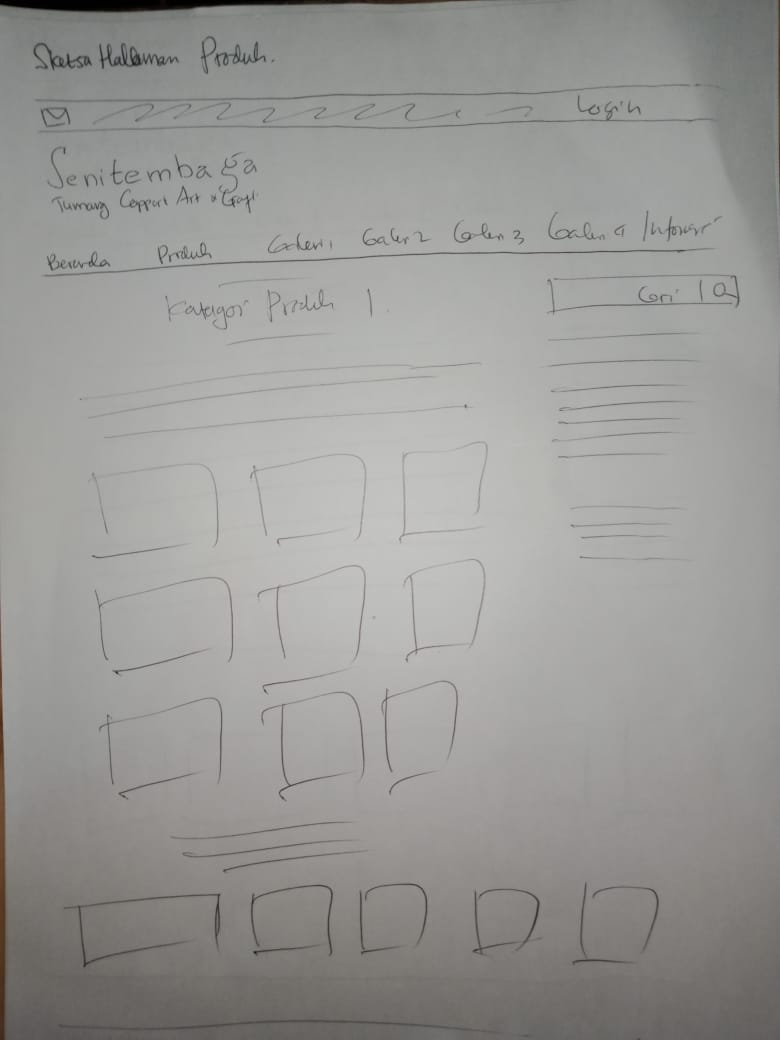 Sketsa Halaman Produk.
Login
Senitembaga
Tumang Copper Art & Craft
Beranda Produk Galeri 1 Galeri 2 Galeri 3 Galeri 4 Informasi
Kategori Produk 1
Cari